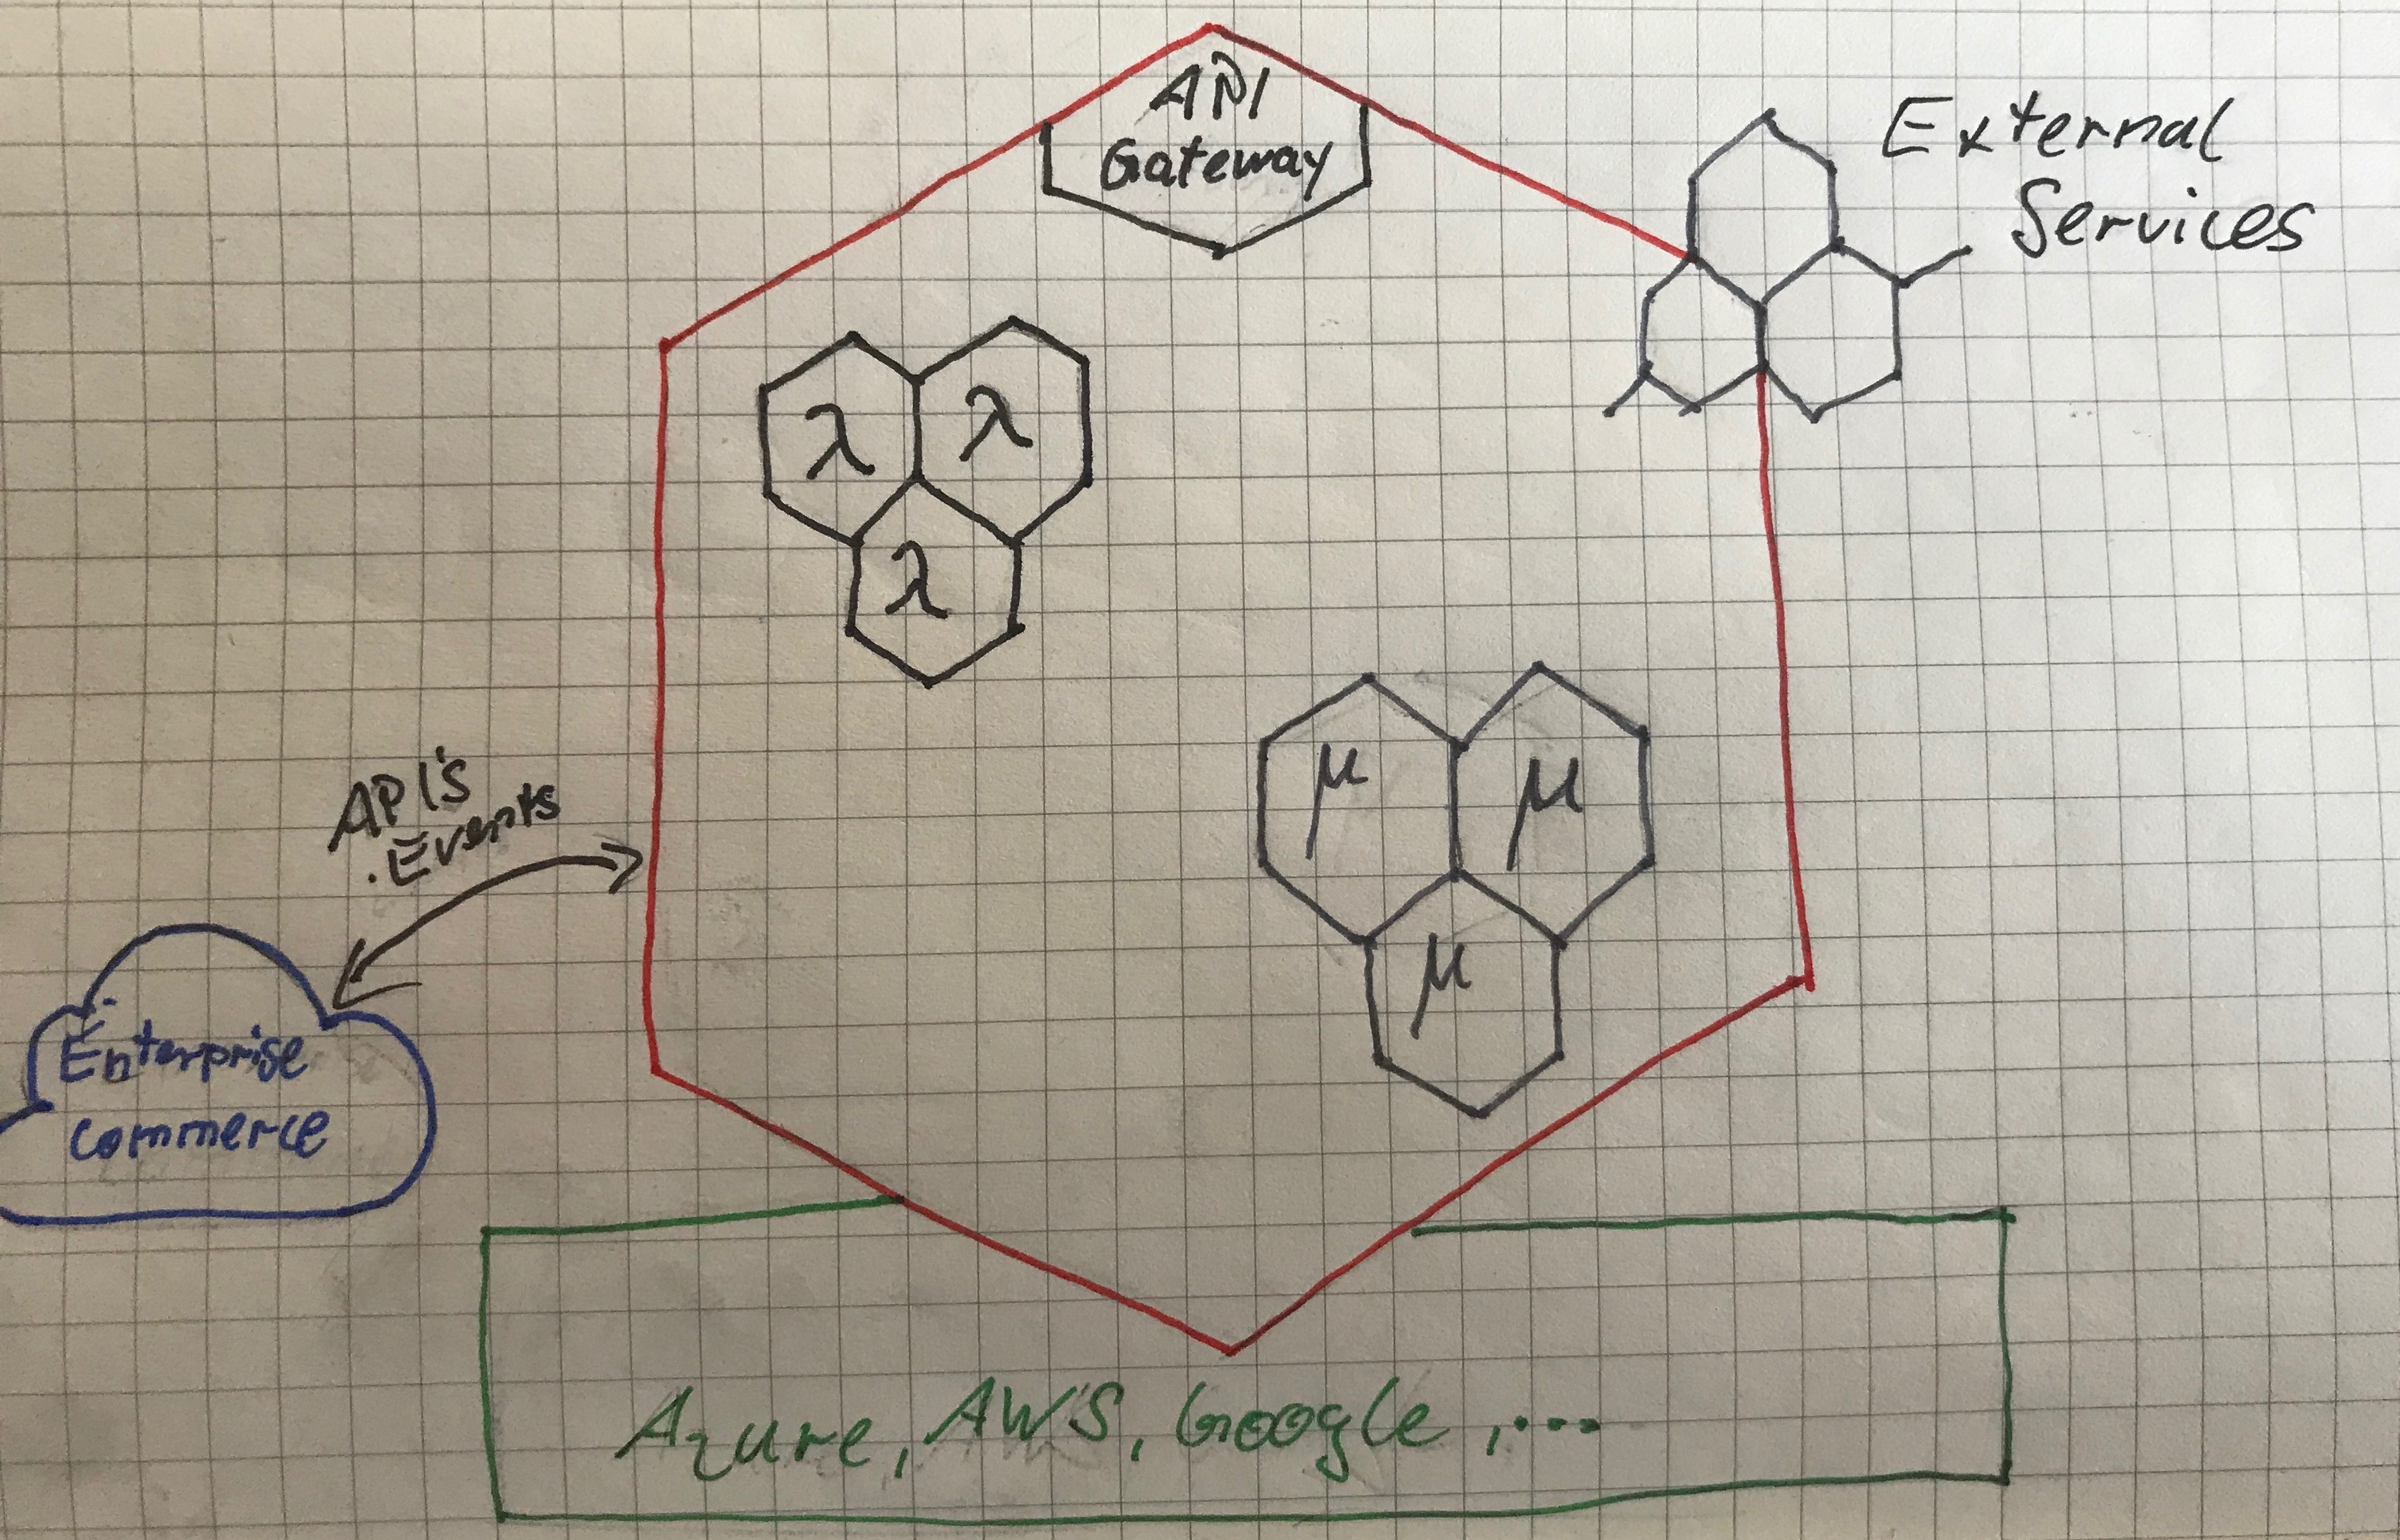 API
Gateway
External
Services
λ
λ
λ
μ
μ
μ
API's
.Events
Enterprise
commerce
Azure, AWS, Google, ...